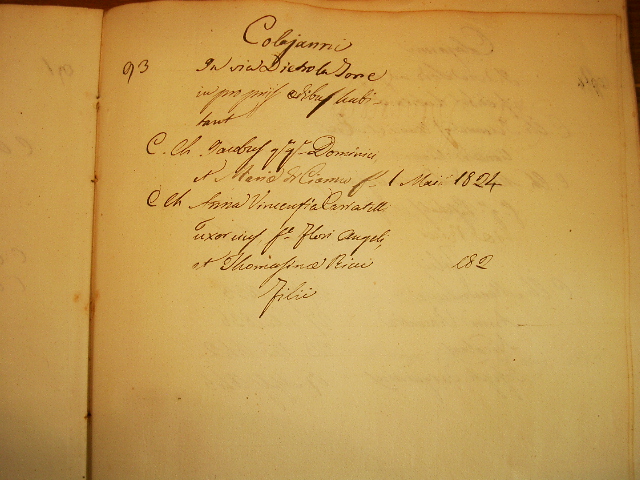 Colajanni
93 In via Dietro la Torre
in propriis ædibus habi-
tant
C. Ch Jacobus qm qm Dominici
et Maria Di Cianno f. 1 Maii 1824
C Ch Anna Vincensia
Uxor eius fa Flori Angeli
et Thomasina Ricci 182
Filii